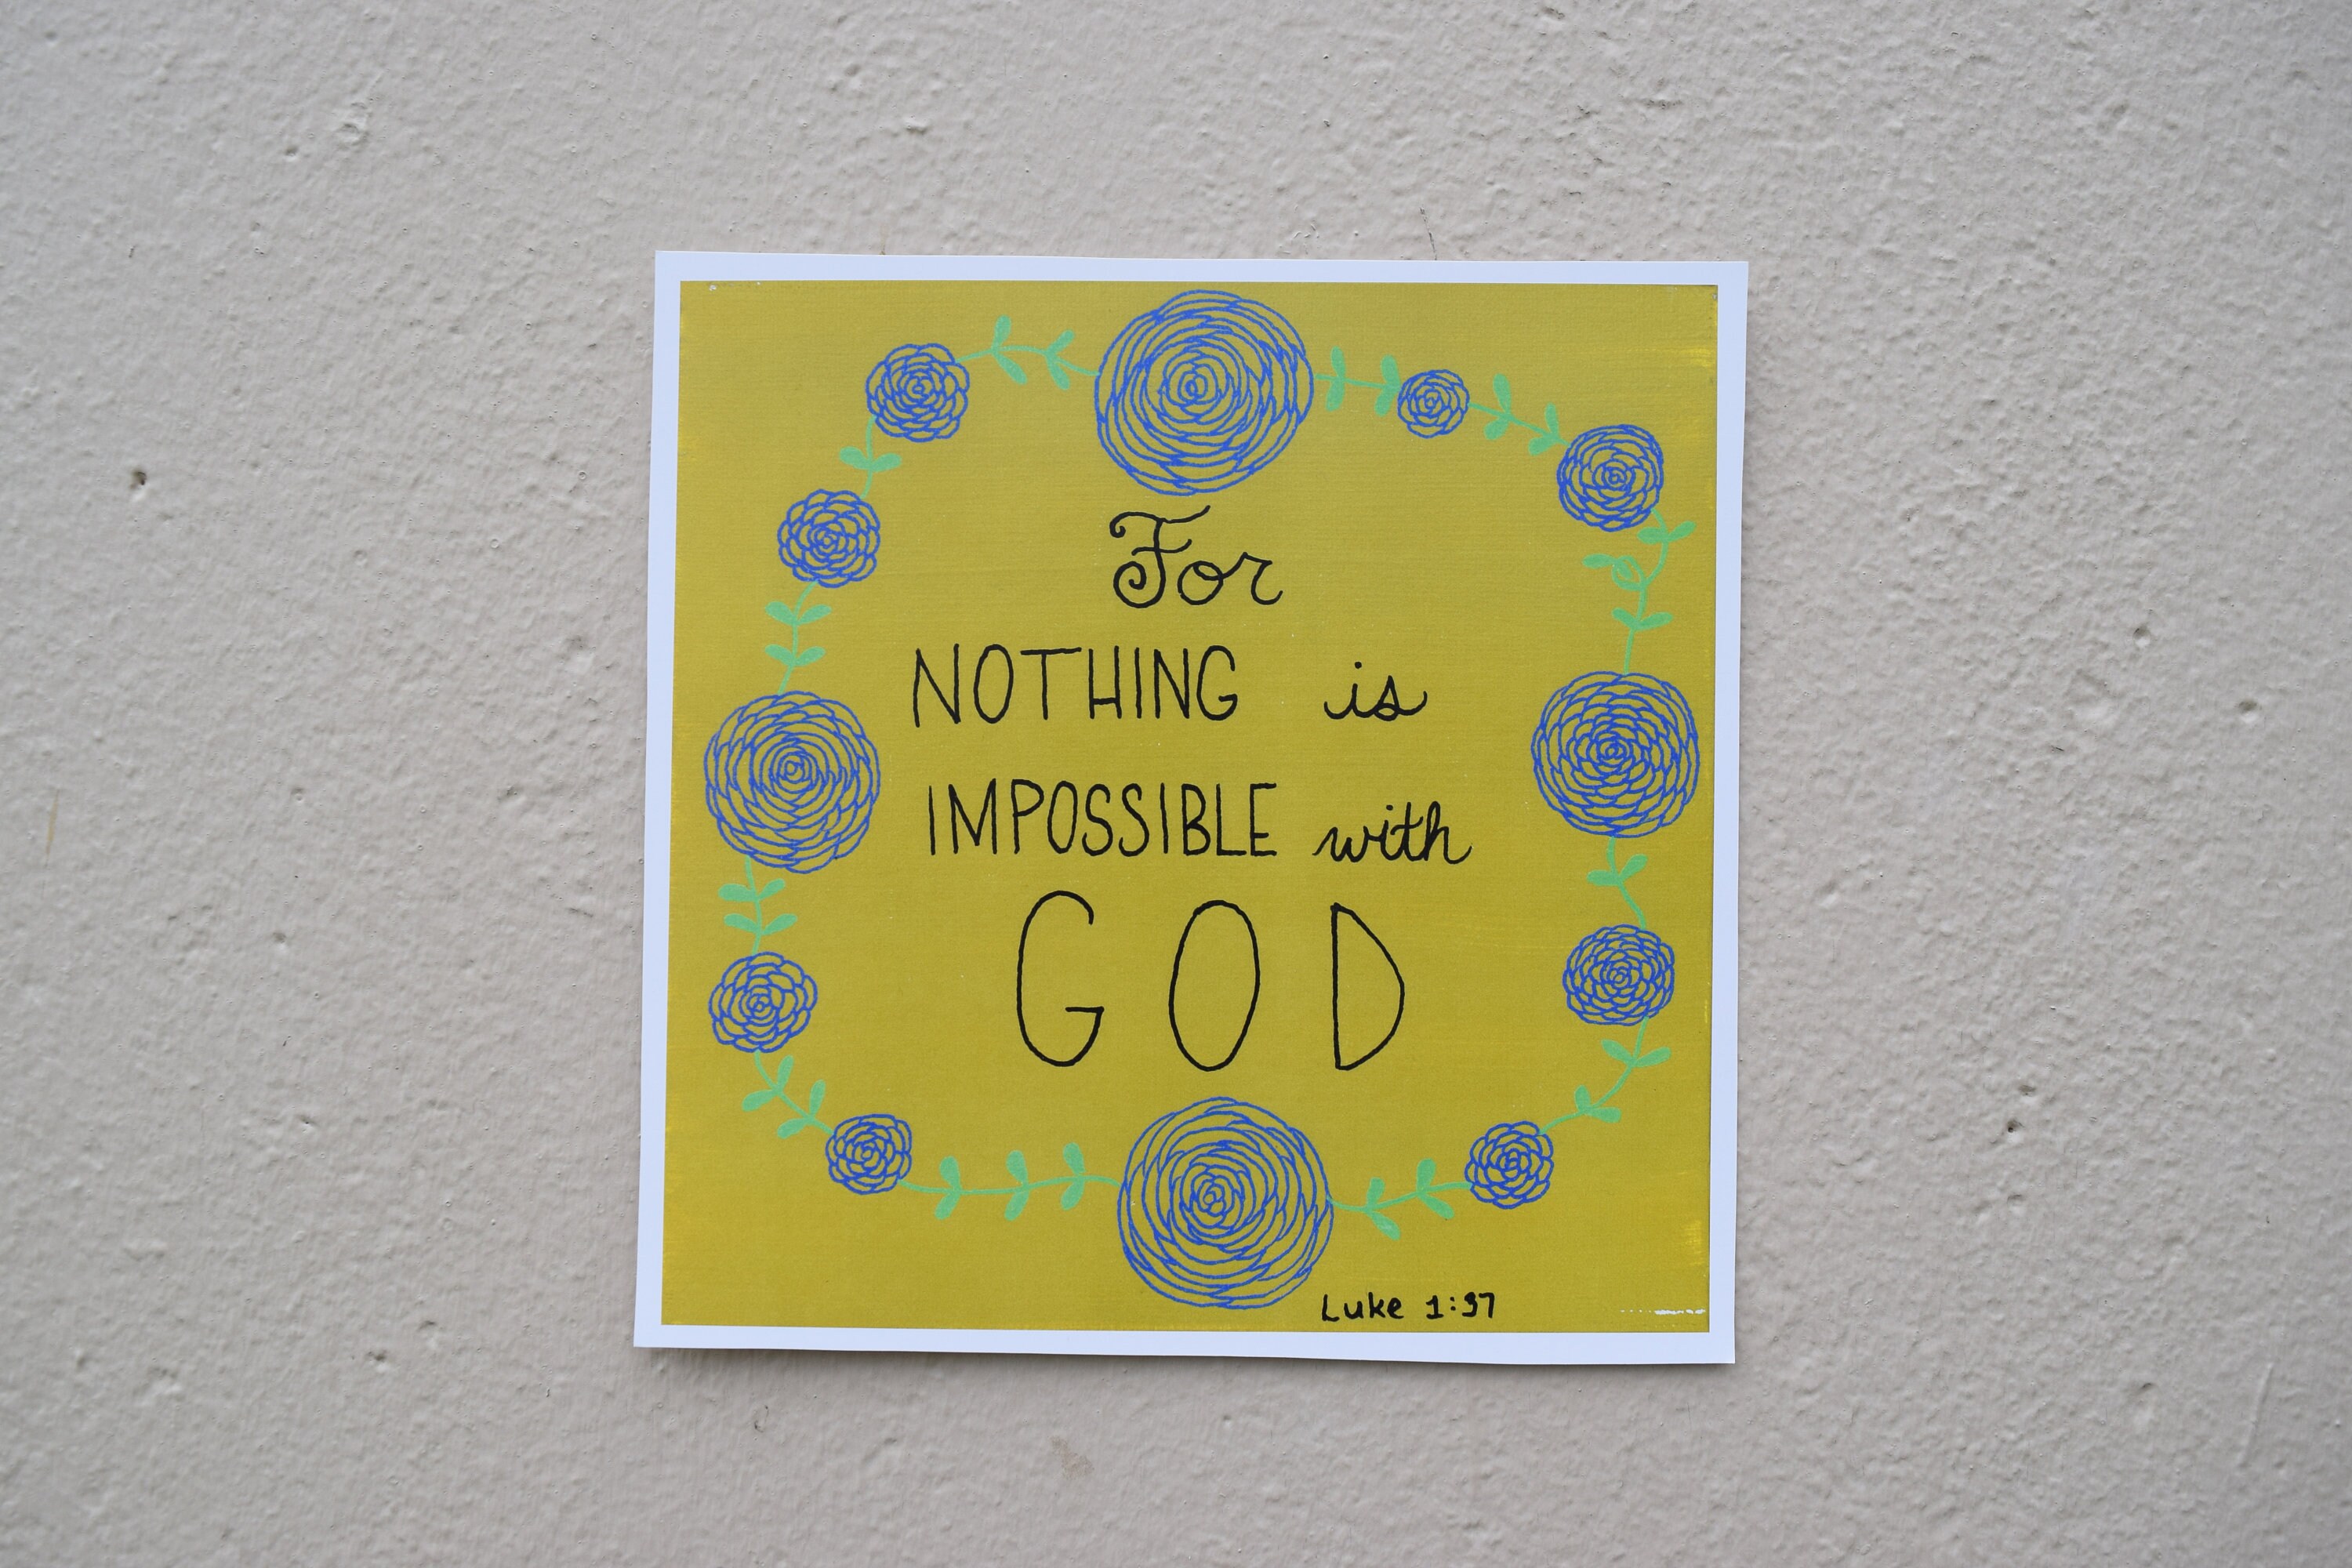 For
NOTHING is
IMPOSSIBLE with
GOD
Luke 1:37